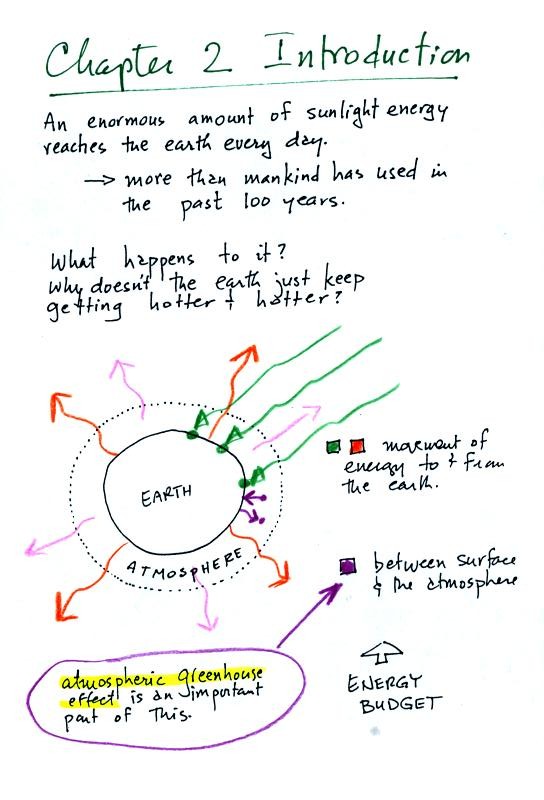 Chapter 2 Introduction
An enormous amount of sunlight energy
reaches the earth every day.
→ more than mankind has used in
the past 100 years.
What happens to it?
Why doesn't the earth just keep
getting hotter & hotter?
EARTH
ATMOSPHERE
movement of
energy to & from
the earth.
between surface
& the atmosphere
atmospheric greenhouse
effect is an important
part of this.
ENERGY
BUDGET